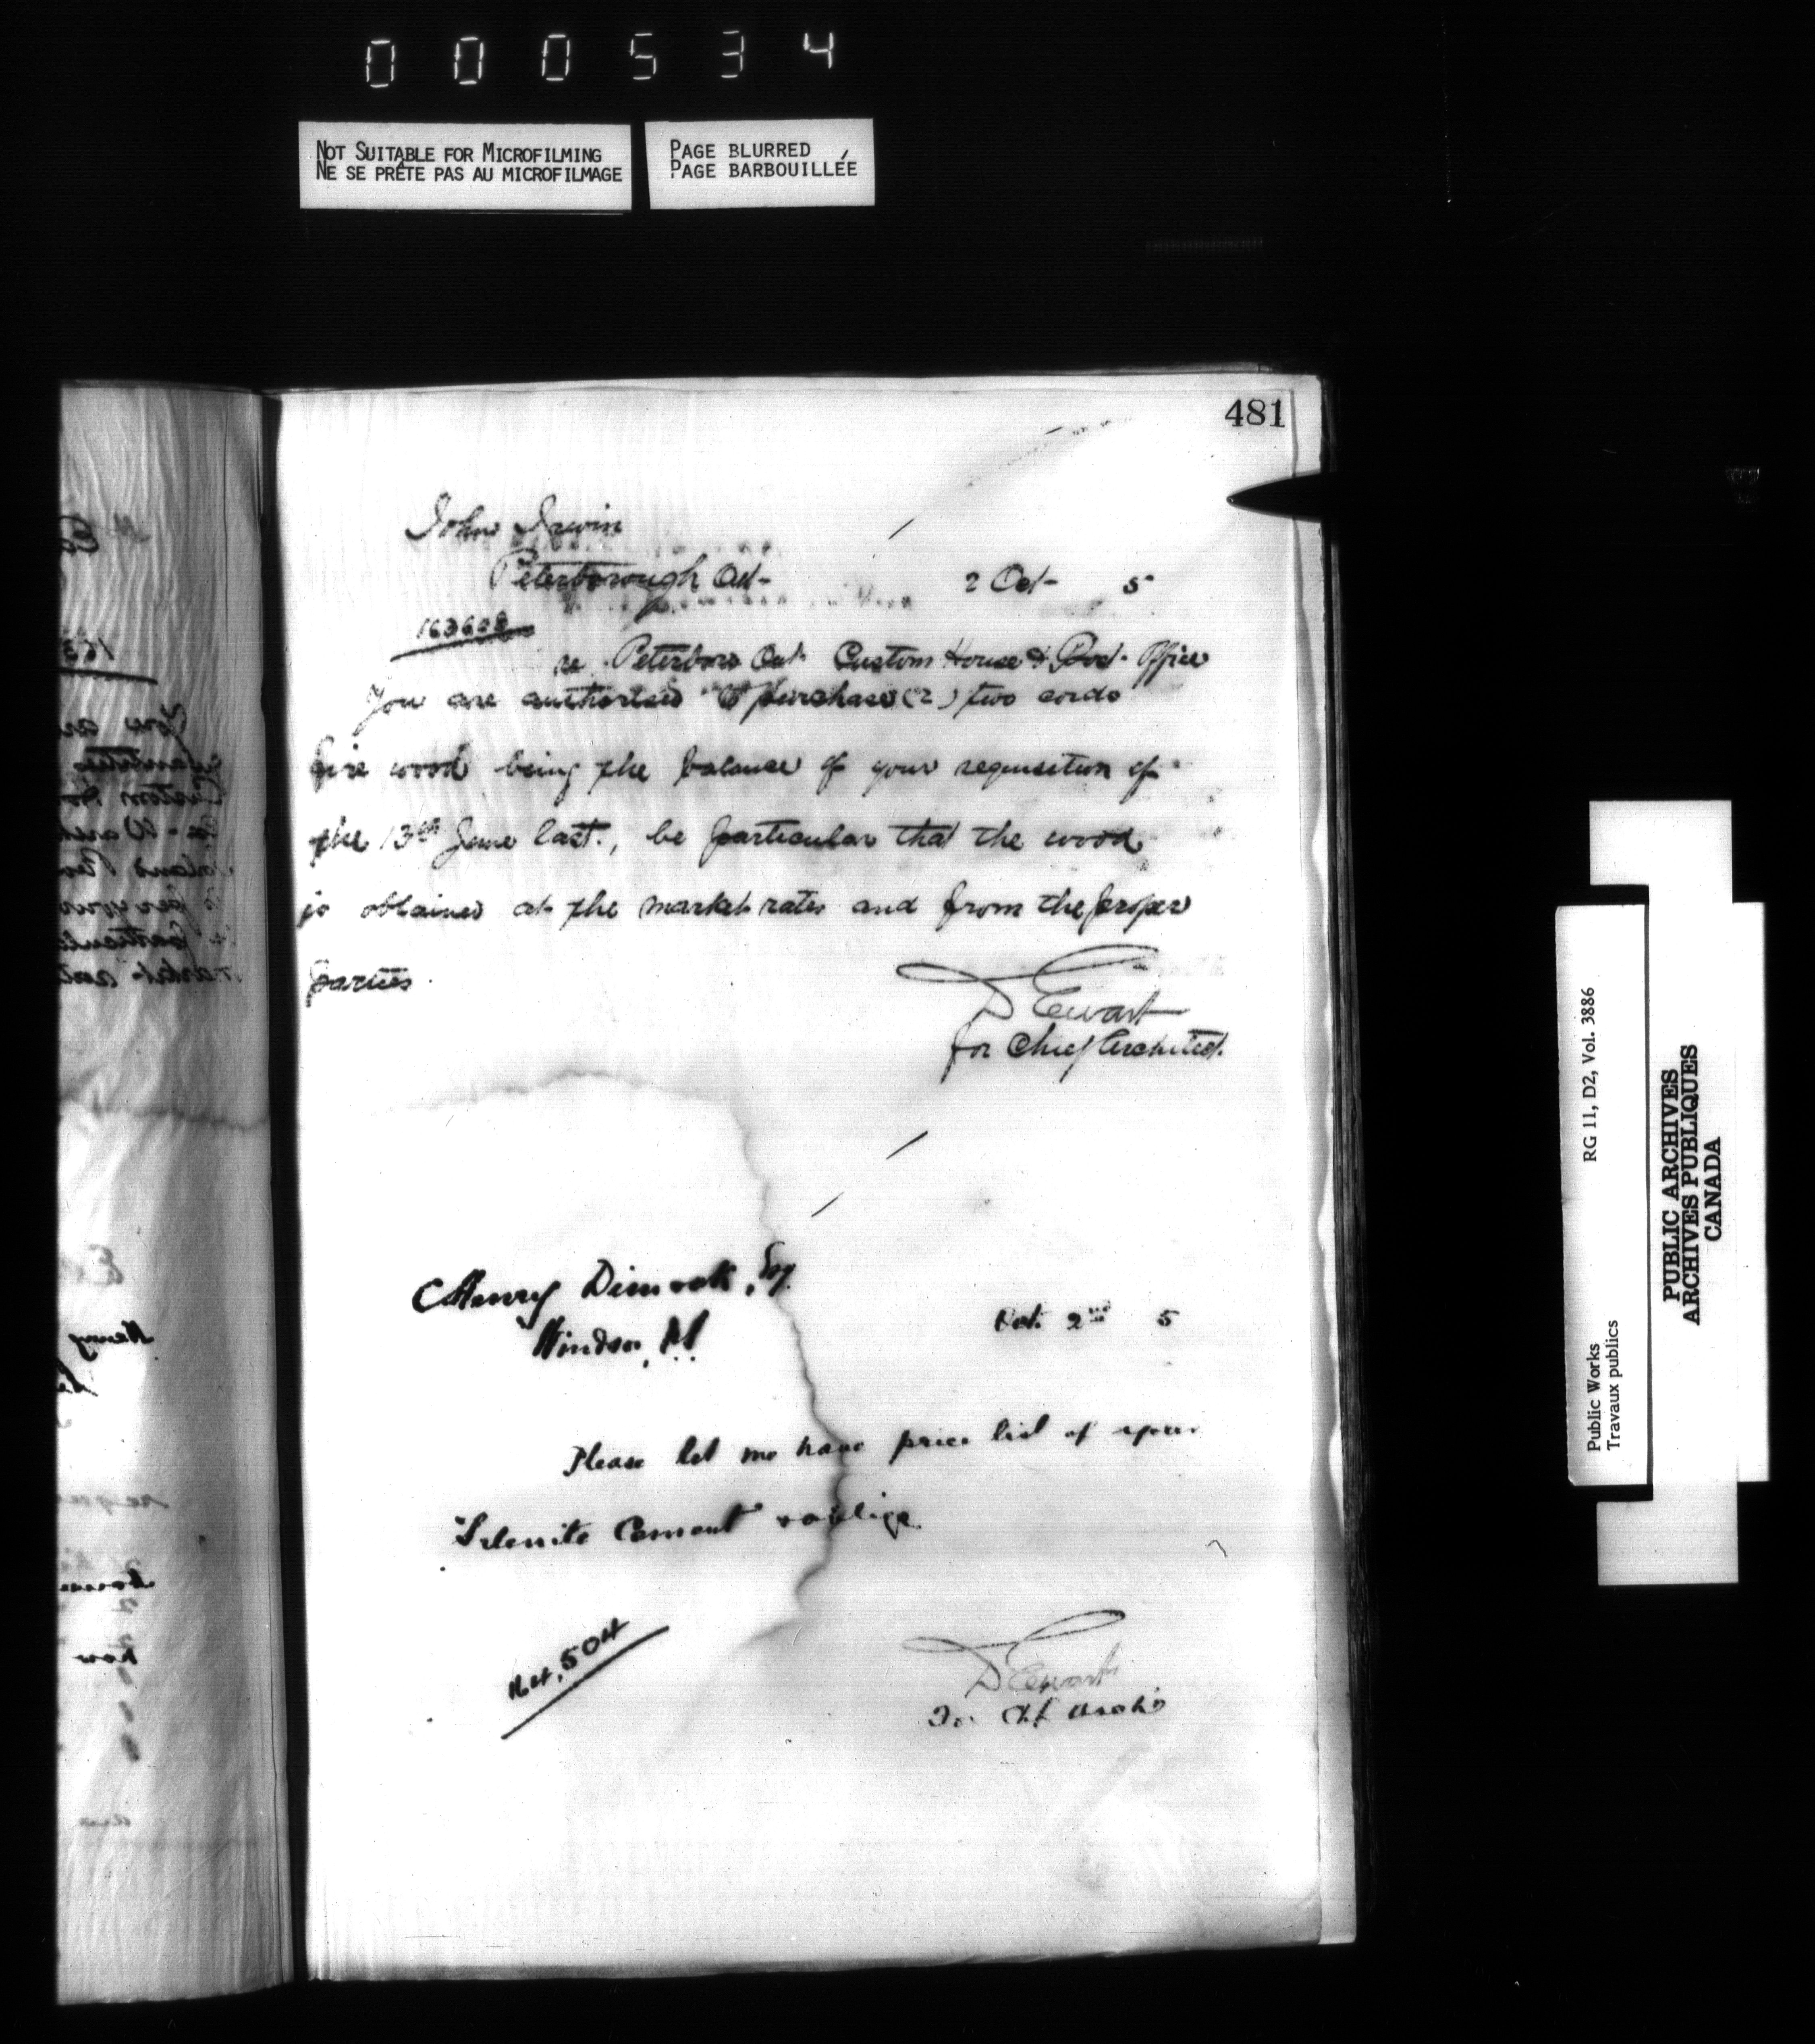 000534
NOT SUITABLE FOR MICROFILMING
NE SE PRÊTE PAS AU MICROFILMAGE
PAGE BLURRED
PAGE BARBOUILLÉE
481
John Irwin
Peterborough Ont 2 Oct 5
163608
re Peterboro Ont Custom House & Post Office
You are authorised to purchase (2) two cords
fire wood being the balance of your requisition of
the 13th June last., be particular that the wood
is obtained at the market rates and from the proper
parties
D Ewart
for Chief Architect.
C Henry Dimock, Esq
Windsor, N.S. Oct. 2nd 5
Please let me have price list of your
"Selenite Cement &oblige
164,504
D Ewart
For Chf Archt
RG 11, D2, Vol. 3886
Public Works
Travaux publics
PUBLIC ARCHIVES
ARCHIVES PUBLIQUES
CANADA